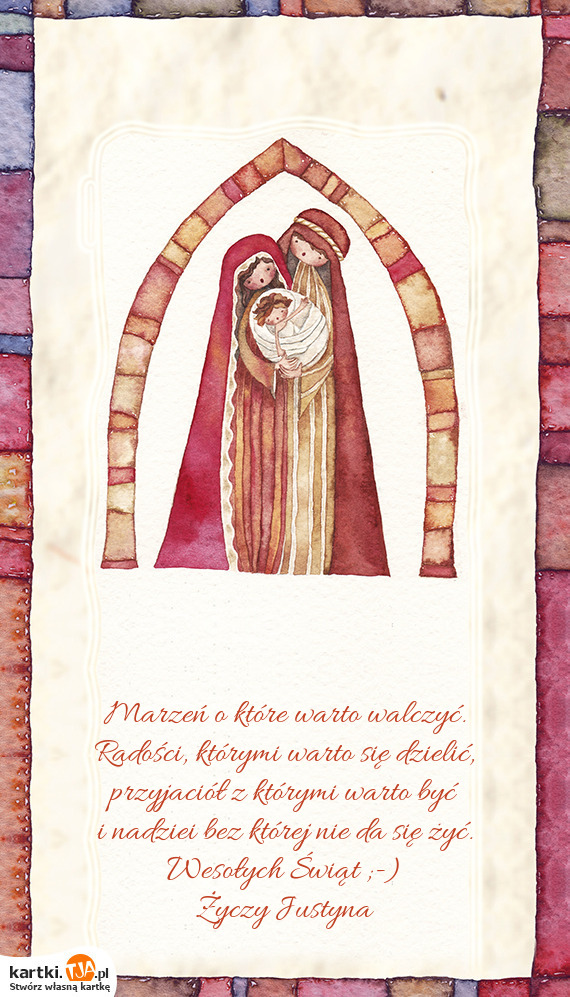 Marzeń o które warto walczyć.
Radości, którymi warto się dzielić,
przyjaciół z którymi warto być
i nadziei bez której nie da się żyć.
Wesołych Świąt ;-)
Życzy Justyna
kartki.TJA.pl
Stwórz własną kartkę